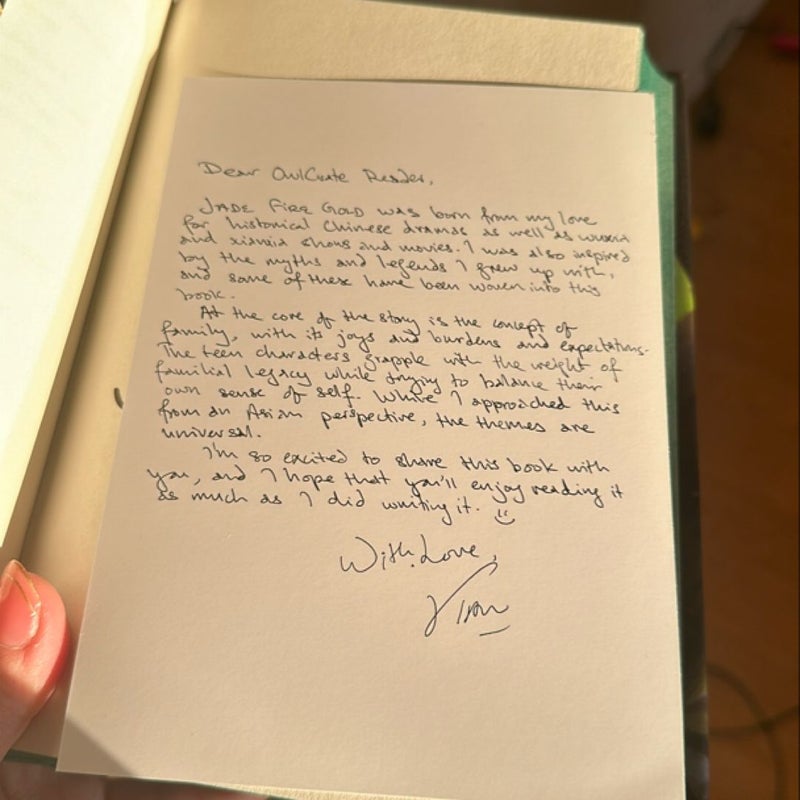 Dear OwlCrate Reader,
JADE FIRE GOLD was born from my love
for historical Chinese dramas as well as wuxia
and xianxia shows and movies. I was also inspired
by the myths and legends I grew up with,
and some of these have been woven into this
book.
At the core of the story is the concept of
family, with its joys and burdens and expectations.
The teen characters grapple with the weight of
familial legacy while trying to balance their
own sense of self. While I approached this
from an Asian perspective, the themes are
universal.
I'm so excited to share this book with
you, and I hope that you'll enjoy reading it
as much as I did writing it.
With Love,